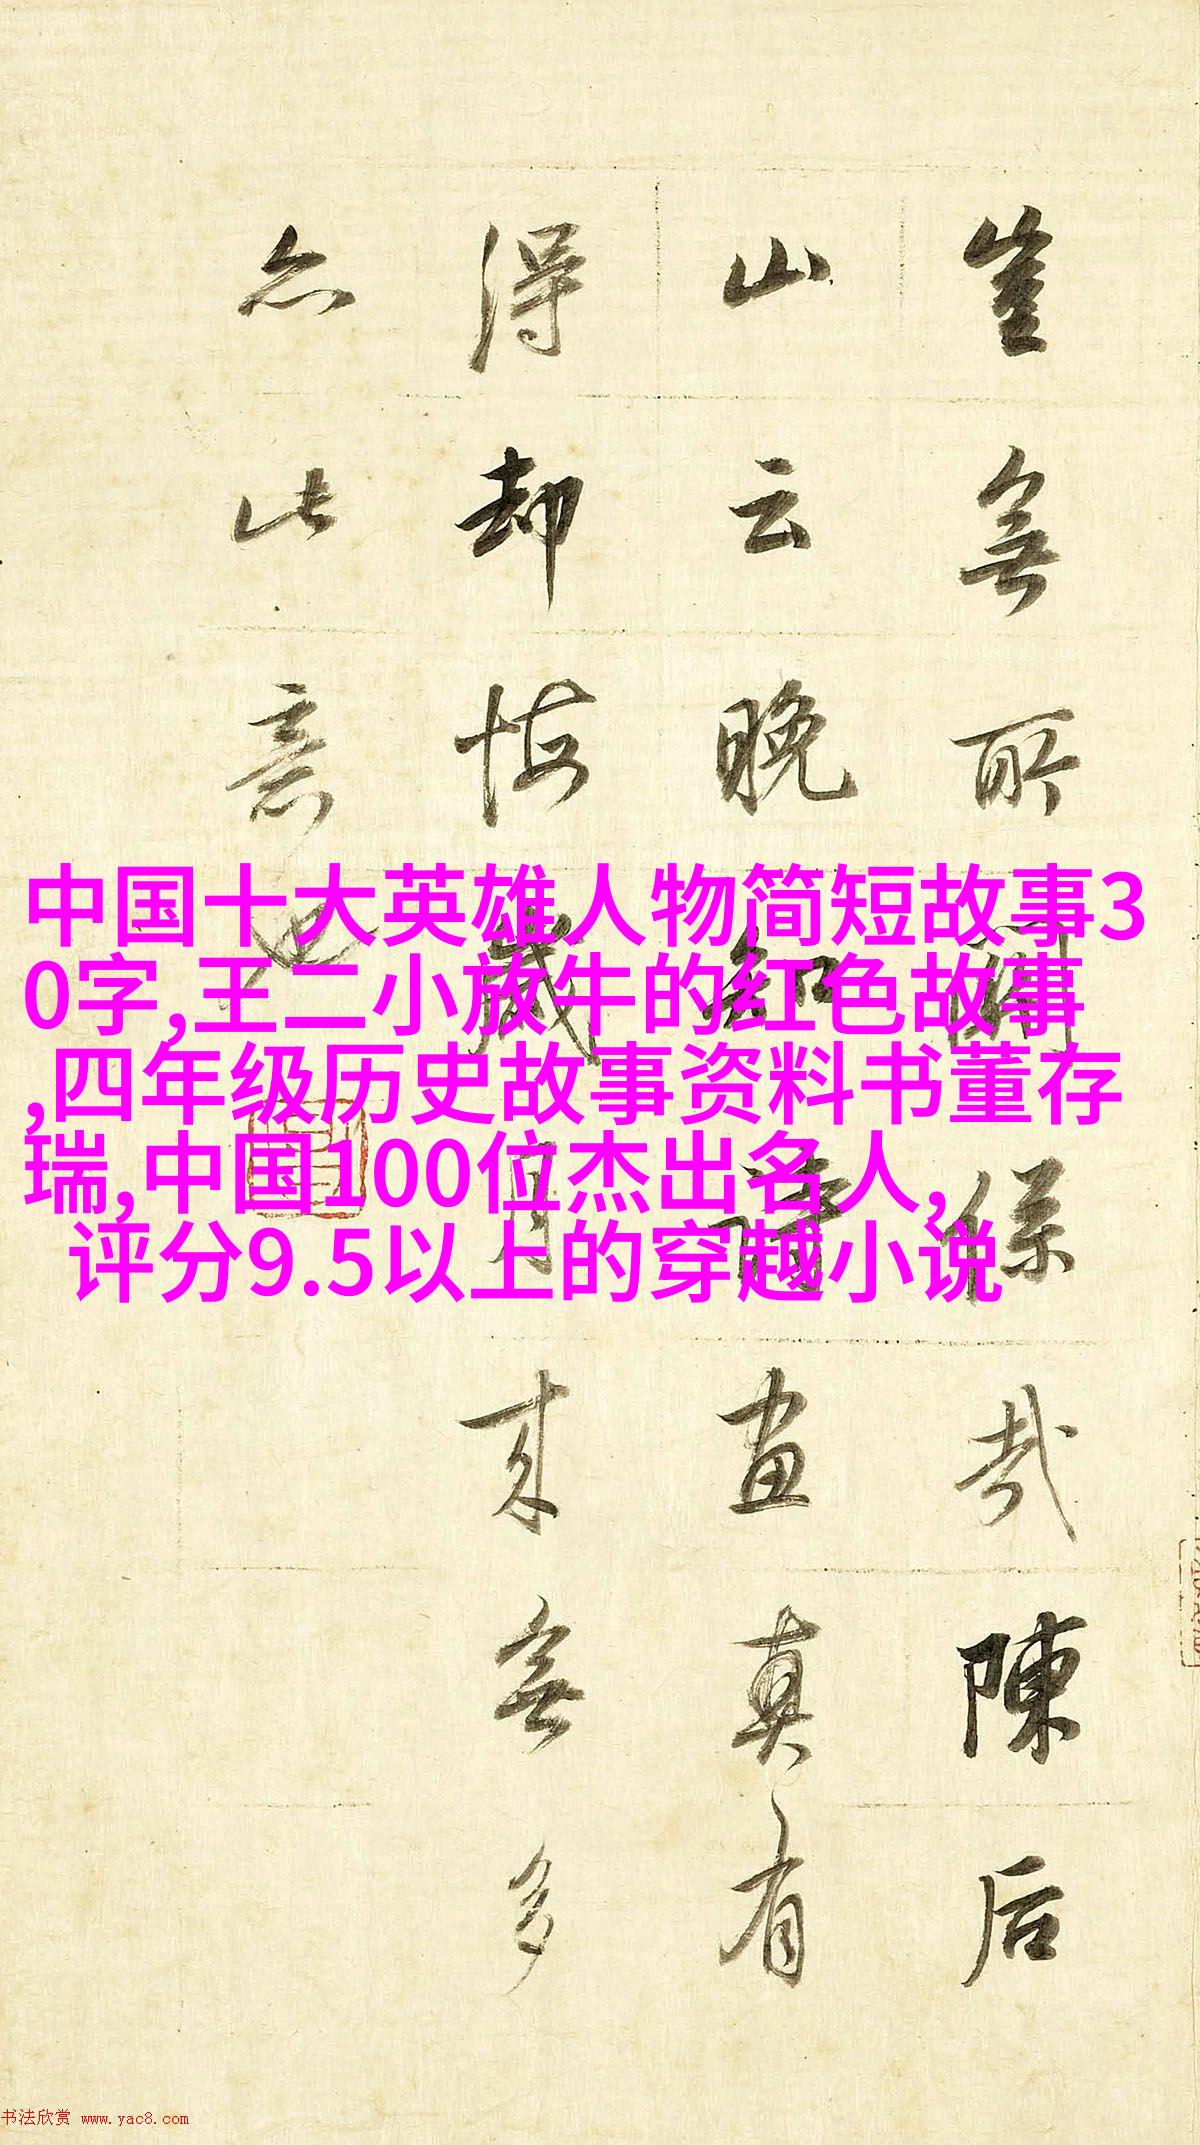 豈無所關係哉陳后
山云晚知詩畫真有
得却悔歲月來無多
亦此意也
中国十大英雄人物简短故事3
0字,王二小放牛的红色故事
,四年级历史故事资料书董存
瑞,中国100位杰出名人,
评分9.5以上的穿越小说
书法欣赏 www.yac8.com